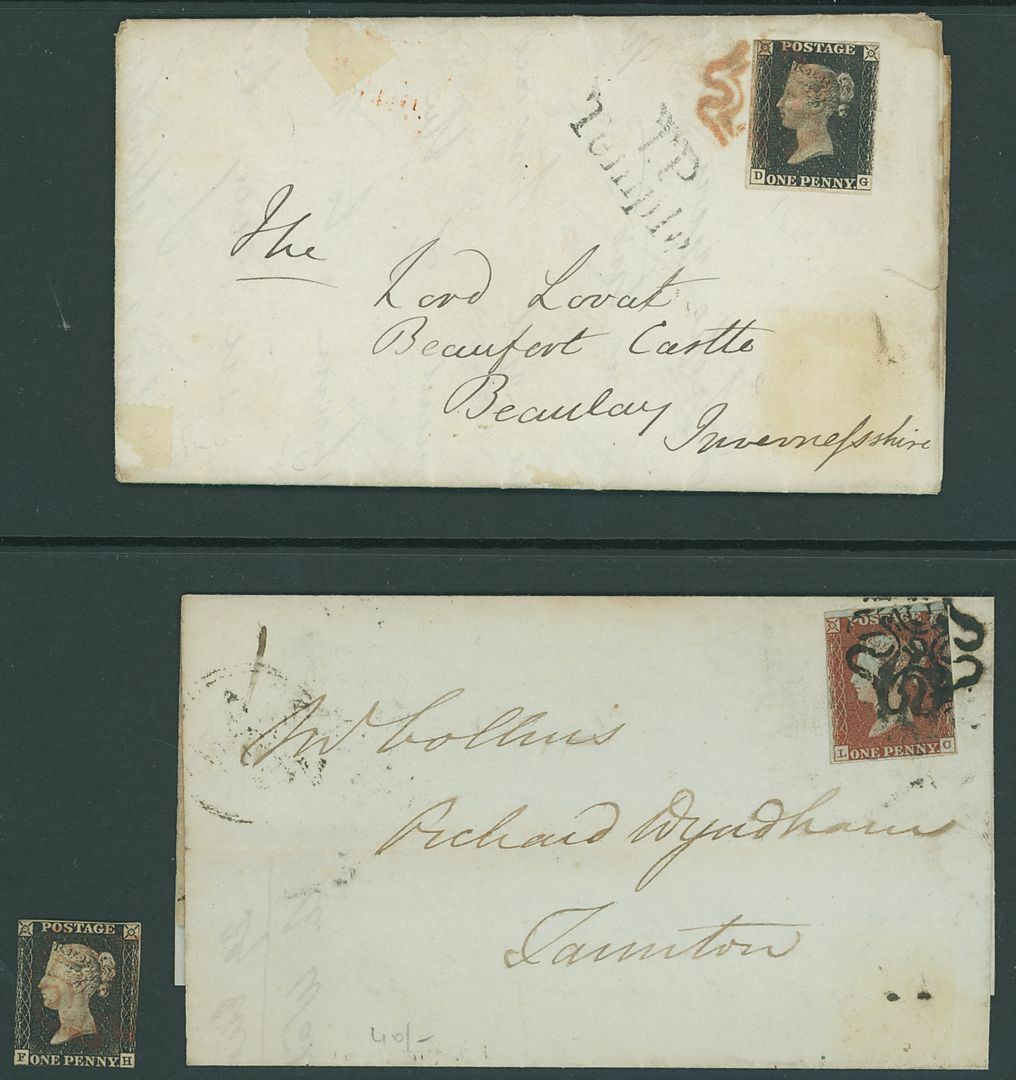 POSTAGE
D ONE PENNY. G
T.P
Temple
The
Lord Lovat
Beaufort Castle
Beaulay
Invernessshire
POSTAGE
L ONE PENNY. C
Mr Collins
Orchard Wyndham
Taunton
40/-
POSTAGE
F ONE PENNY. H